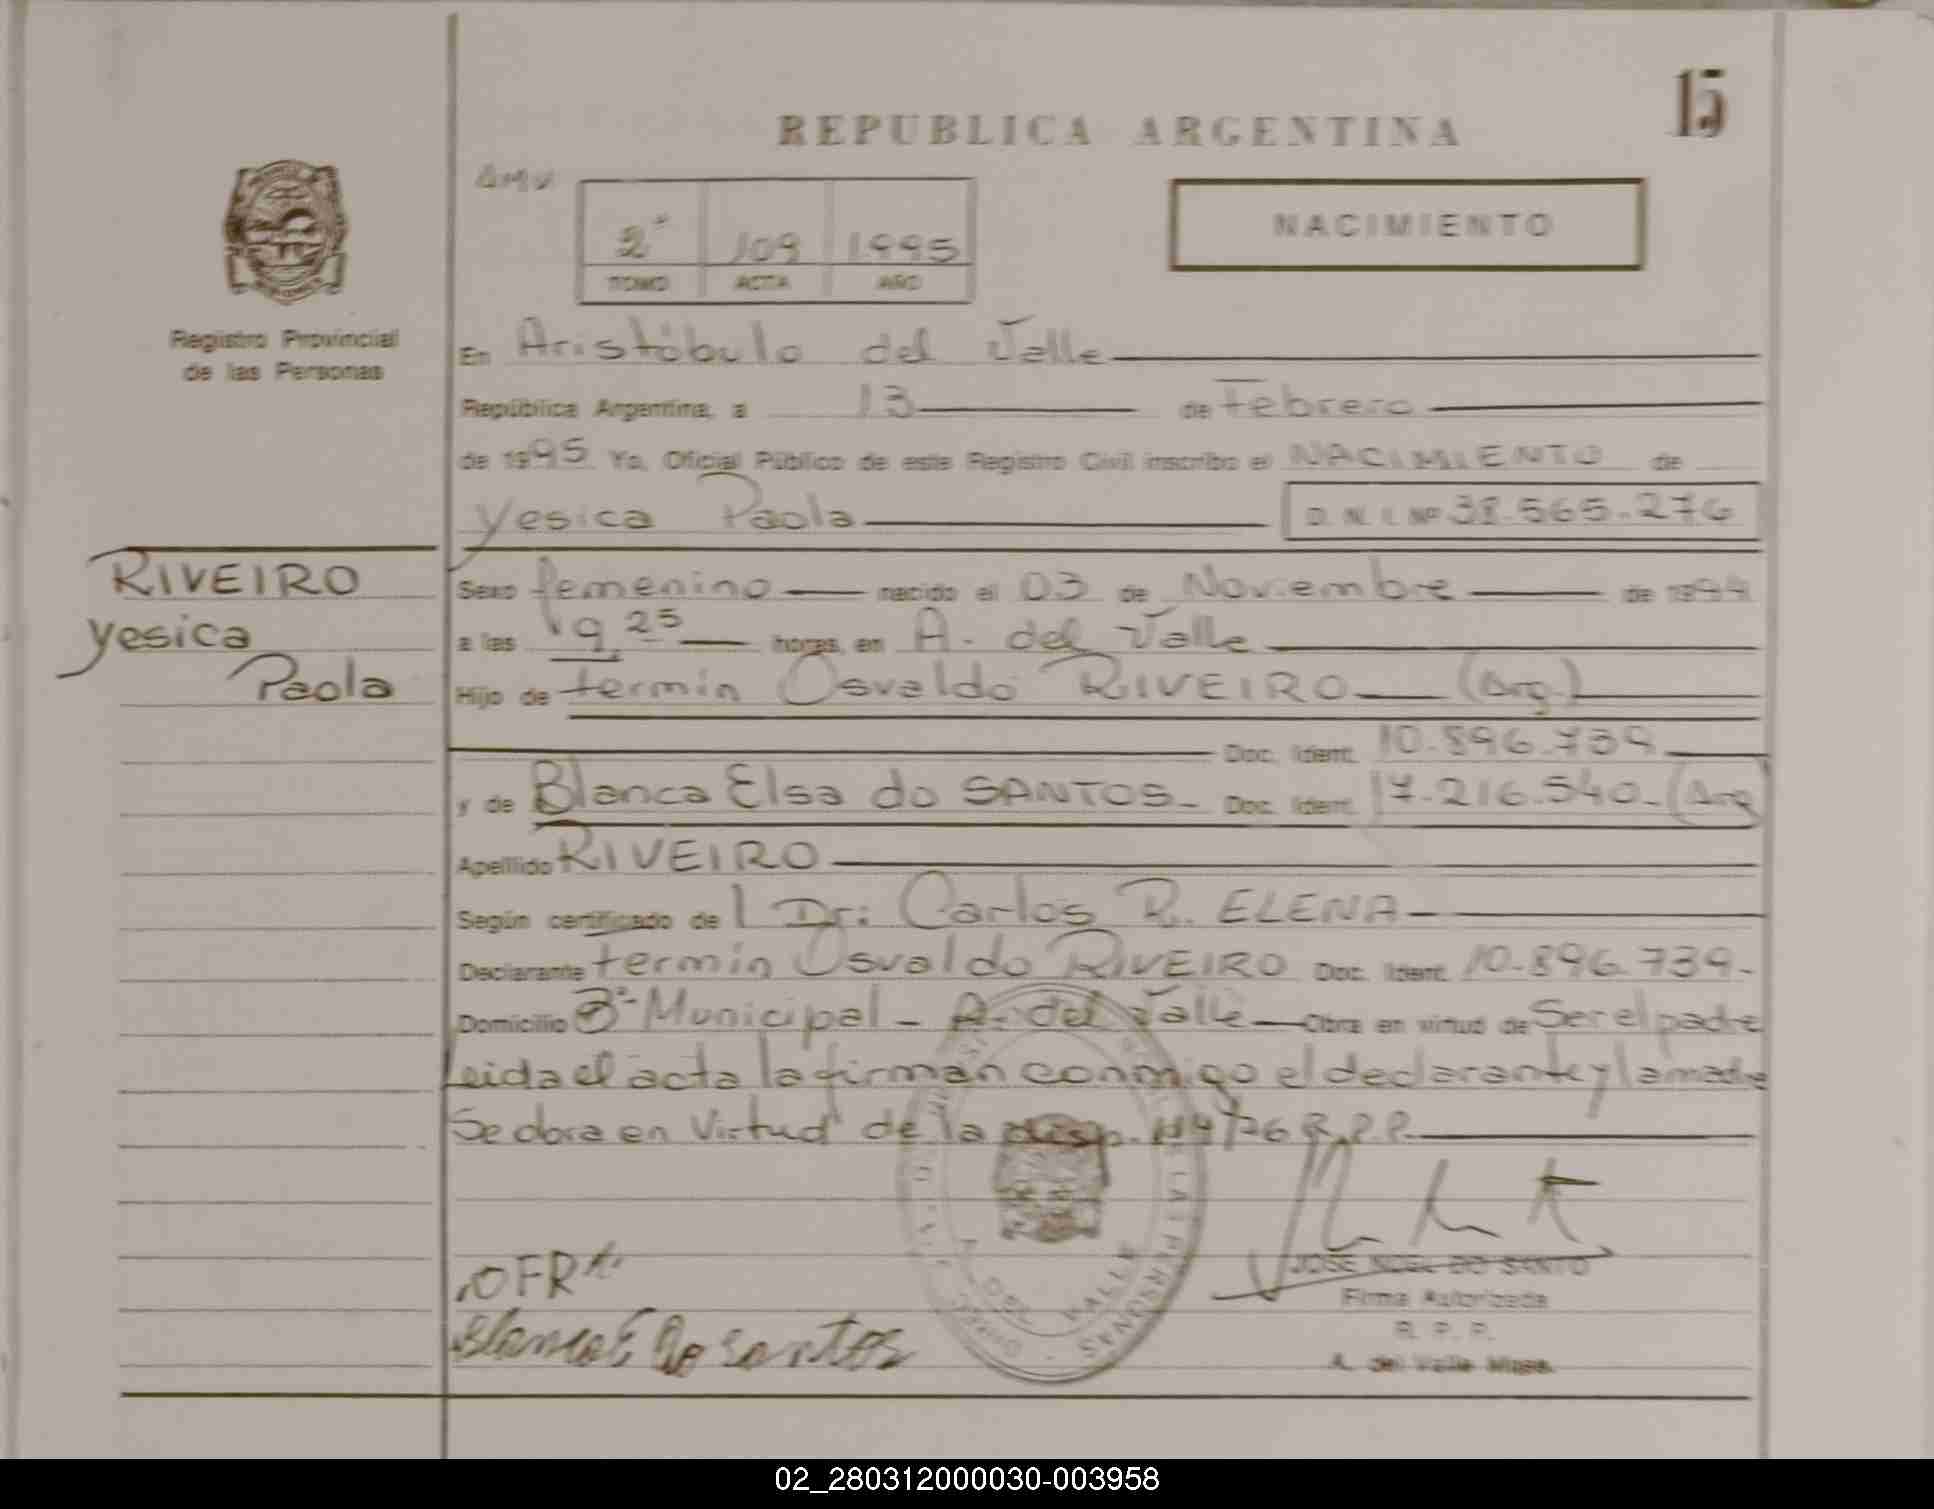 15
REPUBLICA ARGENTINA
NACIMIENTO
2º 109 1.995
TOMO ACTA AÑO
Registro Provincial
de las Personas
En Aristóbulo del Valle
República Argentina, a 13 de Febrero
de 1995 Yo, Oficial Público de este Registro Civil inscribo el NACIMIENTO de
Yesica Paola D.N.I. Nº 38.565.276
RIVEIRO
Yesica
Paola
Sexo femenino nacido el 03 de Noviembre de 1994
a las 19,25 horas, en A. del Valle
Hijo de Fermín Osvaldo RIVEIRO (Arg.)
Doc. Ident. 10.896.739
y de Blanca Elsa do SANTOS- Doc. Ident. 17.216.540-(Arg
Apellido RIVEIRO
Según certificado de Dr: Carlos R. ELENA
Declarante Fermín Osvaldo RIVEIRO Doc. Ident. 10.896.739-
Domicilio Bº Municipal - A. del Valle Obra en virtud de Ser el padre
Leida el acta la firman conmigo el declarante y la madre
Se obra en virtud de la Disp. /76 R.P.P.
OFR
Blanca E Do Santos
JOSE NOEL DO SANTO
Firma Autorizada
R. P. P.
A. del Valle Mnes.
A. DEL VALLE
02_280312000030-003958